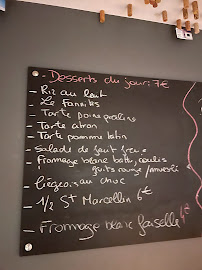 - Desserts du jour: 7€
- Riz au lait
- Le Fannités
- Tarte poire praline
- Tarte citron
- Tarte pomme tatin
- salade de fruit frais
- fromage blanc battu, coulis
fruits rouge /
- liégeois au choc
- 1/2 St Marcellin 6€
- Fromage blanc faisselle